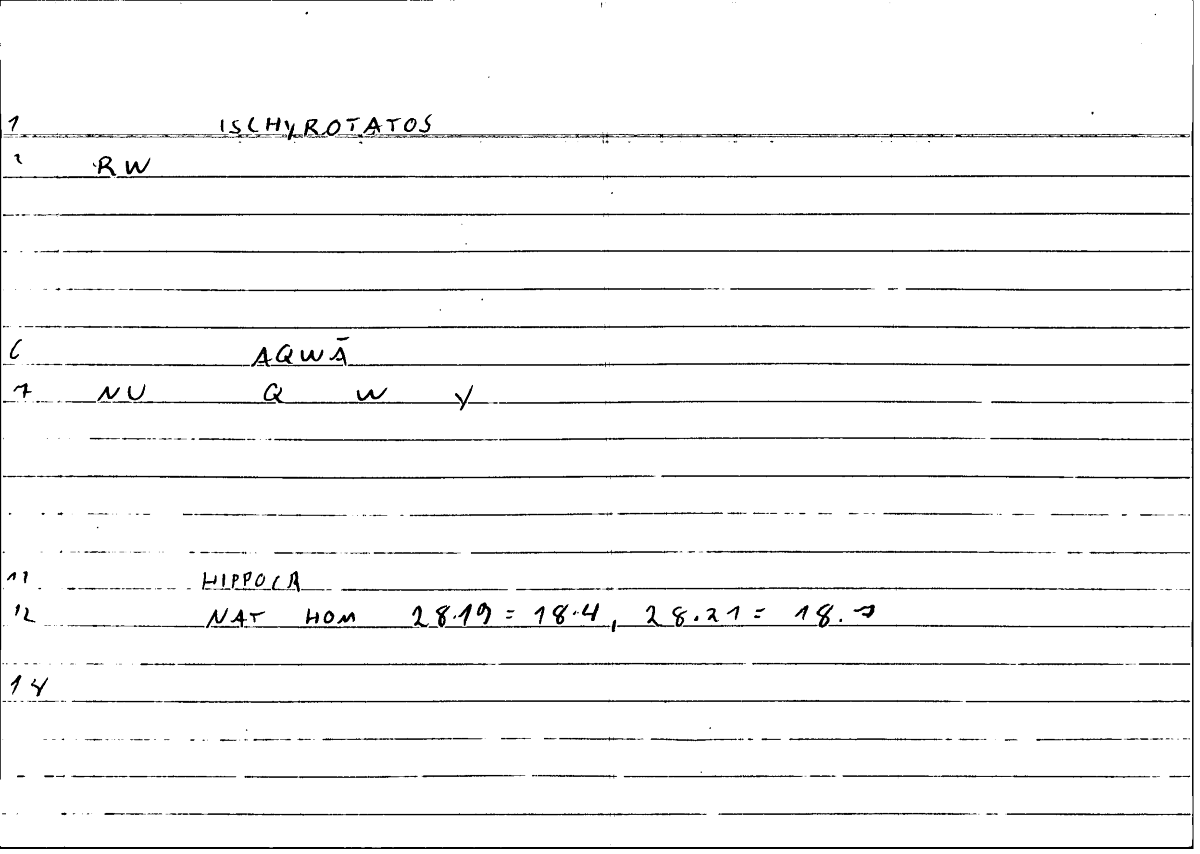 1 ISCHYROTATOS
2 RW
6 AQWĀ
7 NU Q W Y
11 HIPPOCR
12 NAT HOM 28.19 = 18.4, 28.21 = 18.7
14